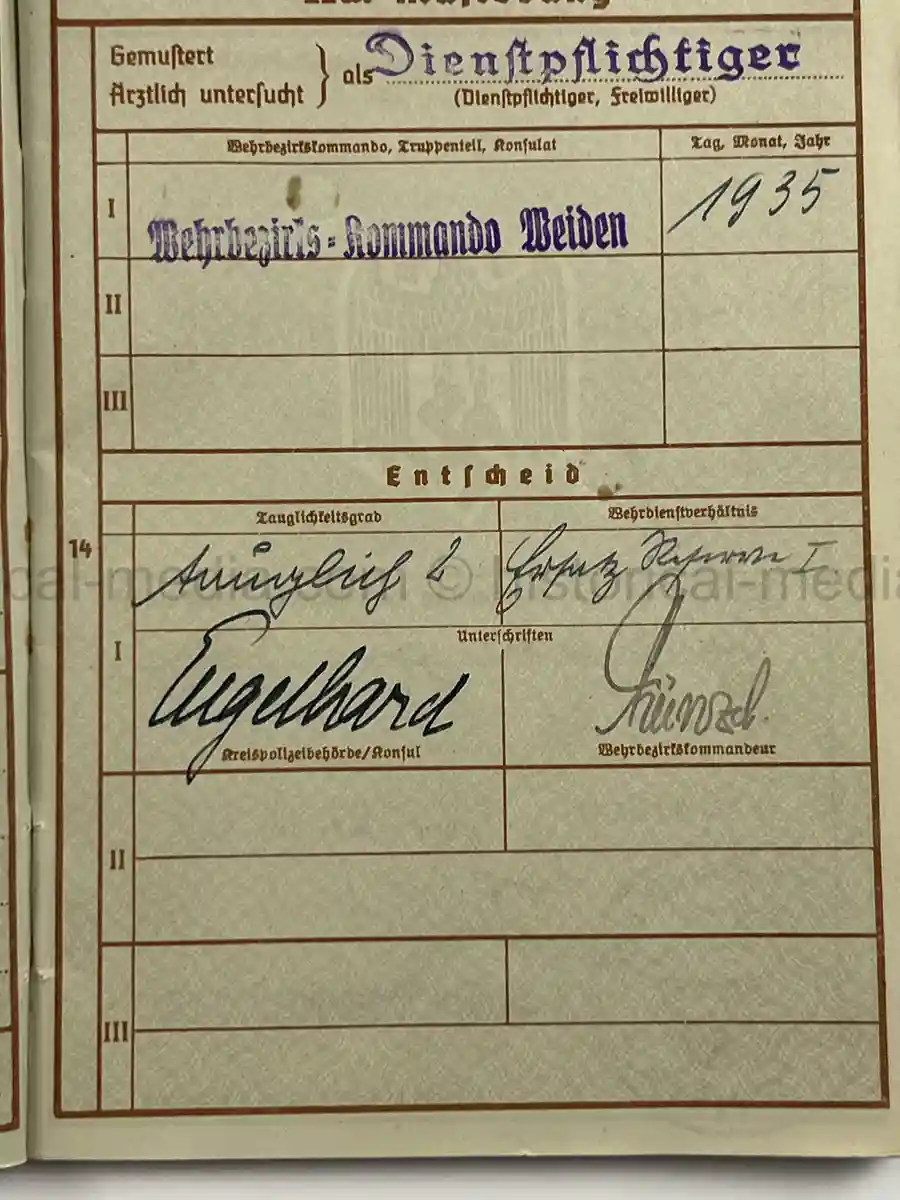 Gemustert
Ärztlich untersucht
als Dienstpflichtiger
(Dienstpflichtiger, Freiwilliger)
Wehrbezirkskommando, Truppenteil, Konsulat
Tag, Monat, Jahr
I
Wehrbezirks-Kommando Weiden
1935
II
III
Entscheid
14
Tauglichkeitsgrad
Wehrdienstverhältnis
tauglich 2
Ersatz Reserve I
I
Unterschriften
Engelhard
Kreispolizeibehörde/Konsul
Wehrbezirkskommandeur
II
III